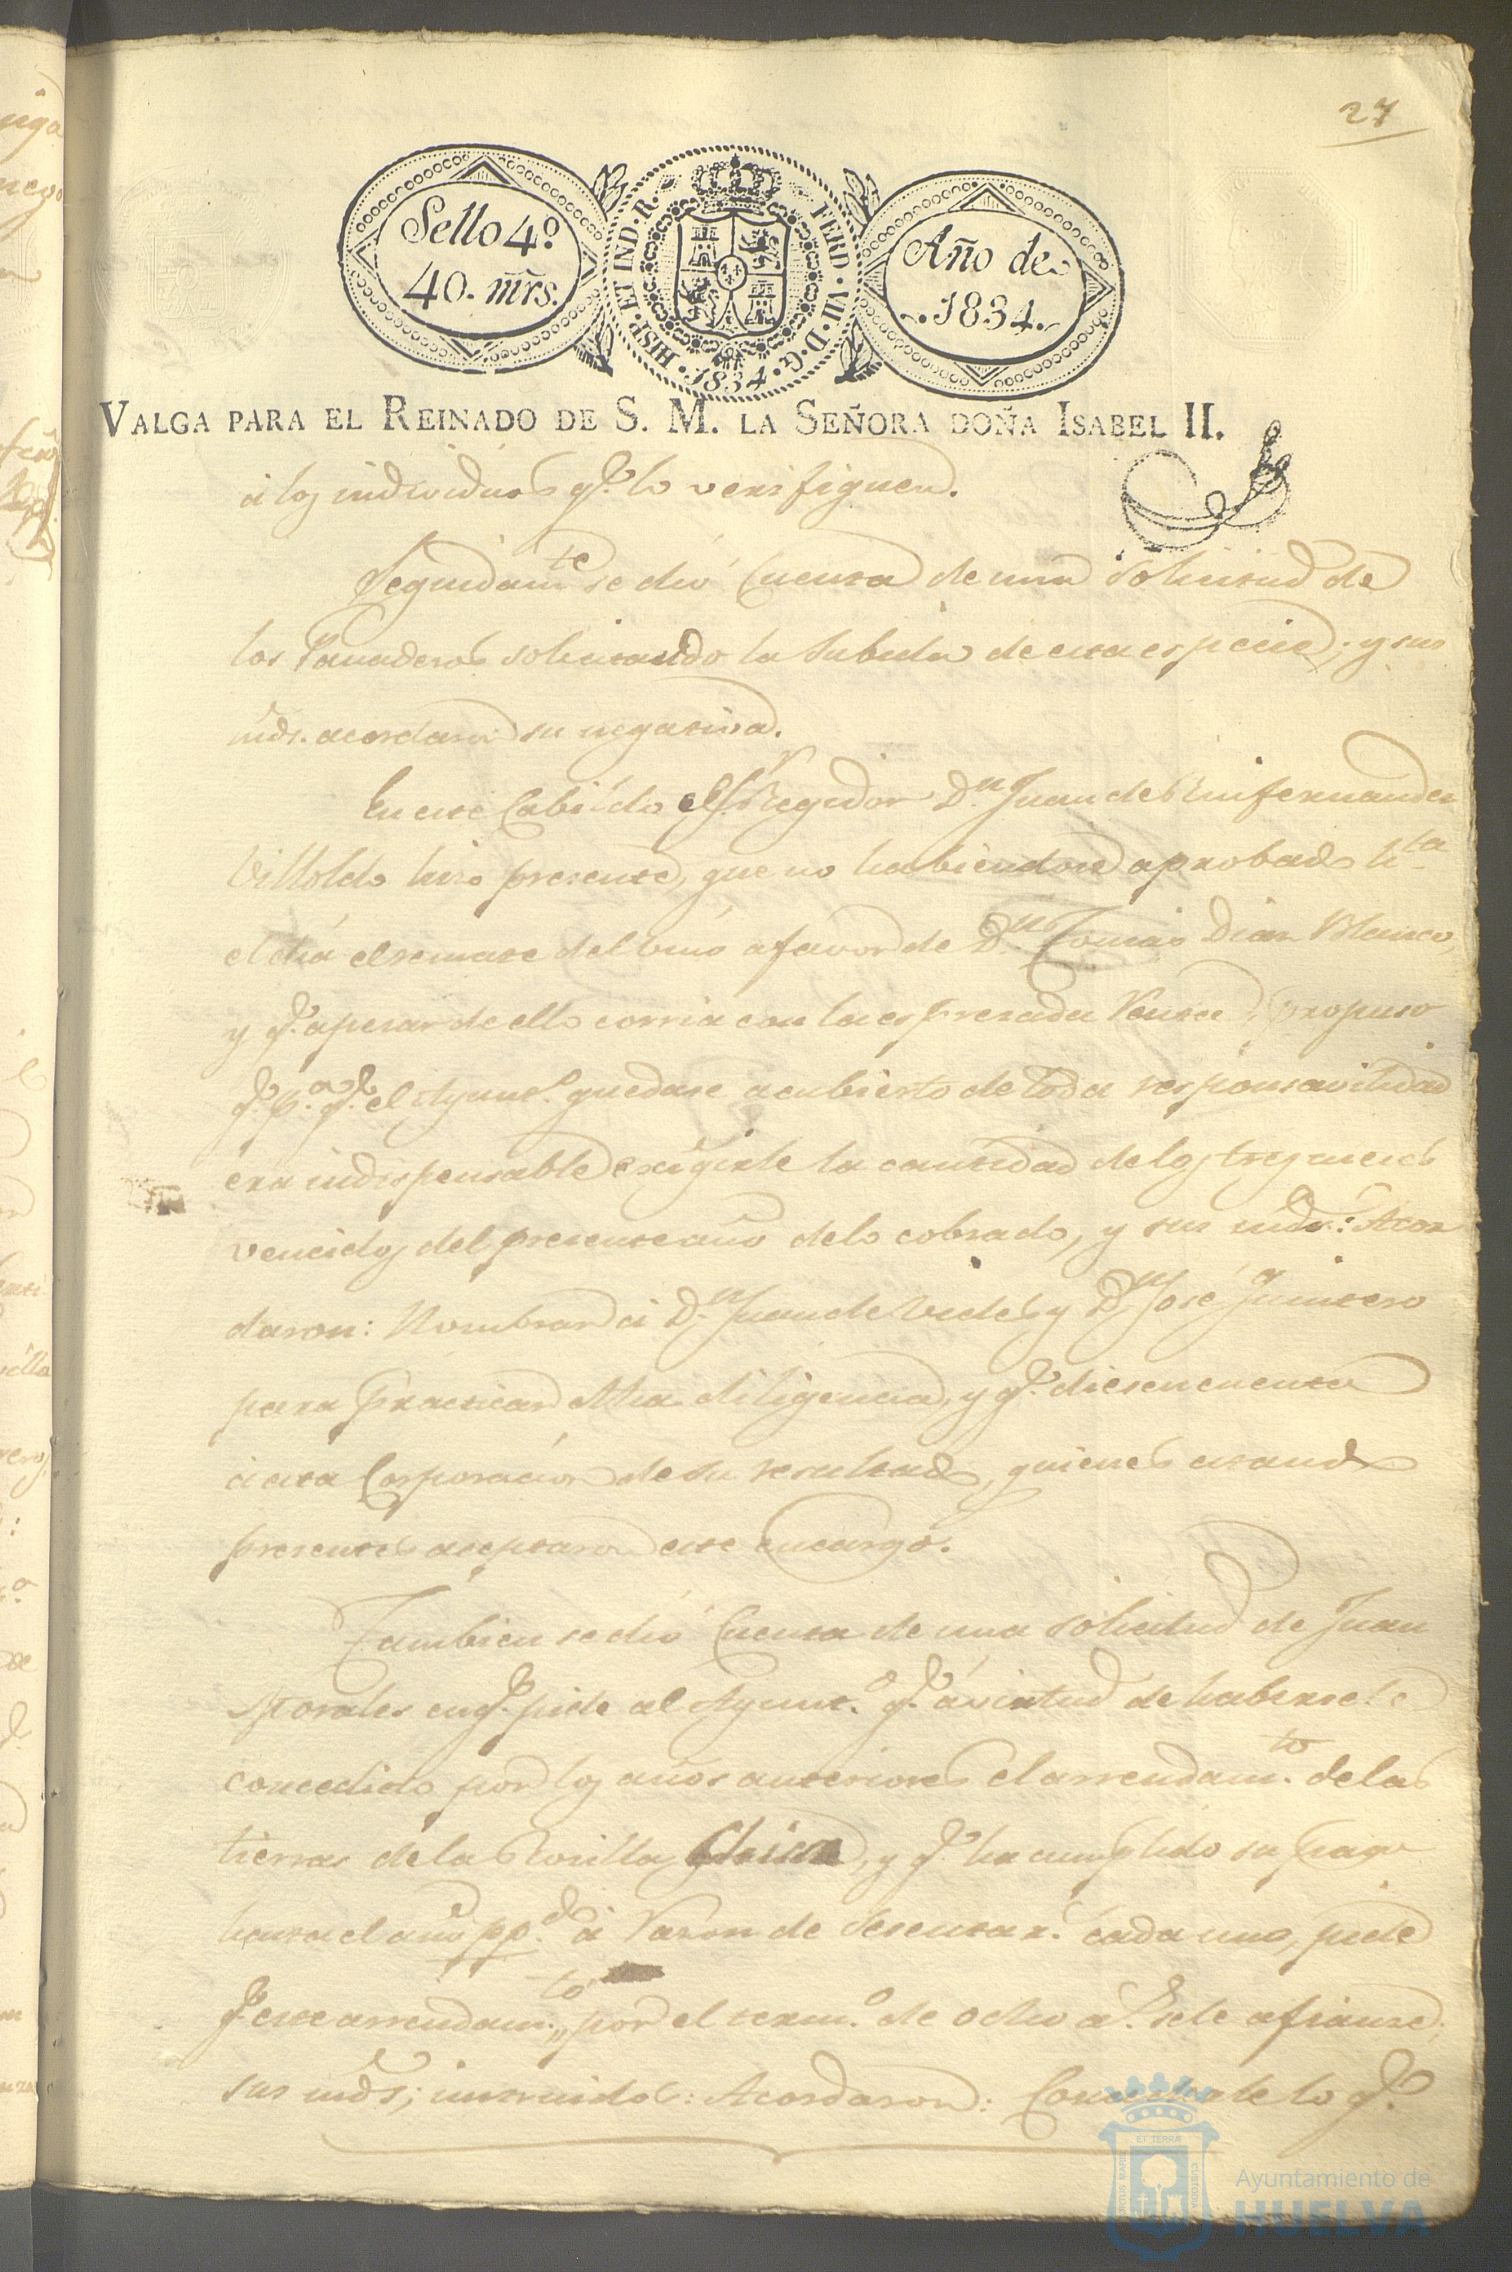 27
Sello 4.º
40. mrs.
HISP. ET IND. R. FERD. VII. D. G. 1834.
Año de
1834.
VALGA PARA EL REINADO DE S. M. LA SEÑORA DOÑA ISABEL II.
á los individuos q.e lo verifiquen.
Seguidam.te se dió Cuenta de una solicitud de
los Panaderos solicitando la Subida de esta especie; y sus
mds. acordaron su negativa.
En este Cabildo el S.r Regidor D.n Juan de Ruifernandez
Villoldo hizo presente, que no habiendose aprobado h.ta
el dia el remate del vino a favor de D.n Tomás Diaz Blanco,
y q.e apesar de ello corria con la espresada Renta, propuso
q.e p.a q.e el Ayunt.o quedase a cubierto de toda responsavilidad
era indispensable exigirle la cantidad de los tres meses
vencidos del presente año de lo cobrado, y sus mds.: Acor
daron: Nombrar á D.n Juan de Vides y D.n José Quintero
para practicar dha diligencia, y q.e diesen cuenta
á esta Corporacion de su resultado, quienes estando
presentes aceptaron este encargo.
Tambien se dió Cuenta de una solicitud de Juan
Morales en q.e pide al Ayunt.o q.e á virtud de habersele
concedido por los años anteriores el arrendam.to de las
tierras de la Rosilla, y q.e ha cumplido su pago
hasta el año pp.do á razon de Sesenta r.s cada uno, pide
q.e este arrendam.to por el term.o de ocho a.s se le afianse;
sus mds; instruidos: Acordaron: Concederle lo q.e
ET TERRÆ
PORTUS MARIS
CUSTODIA
Ayuntamiento de
HUELVA